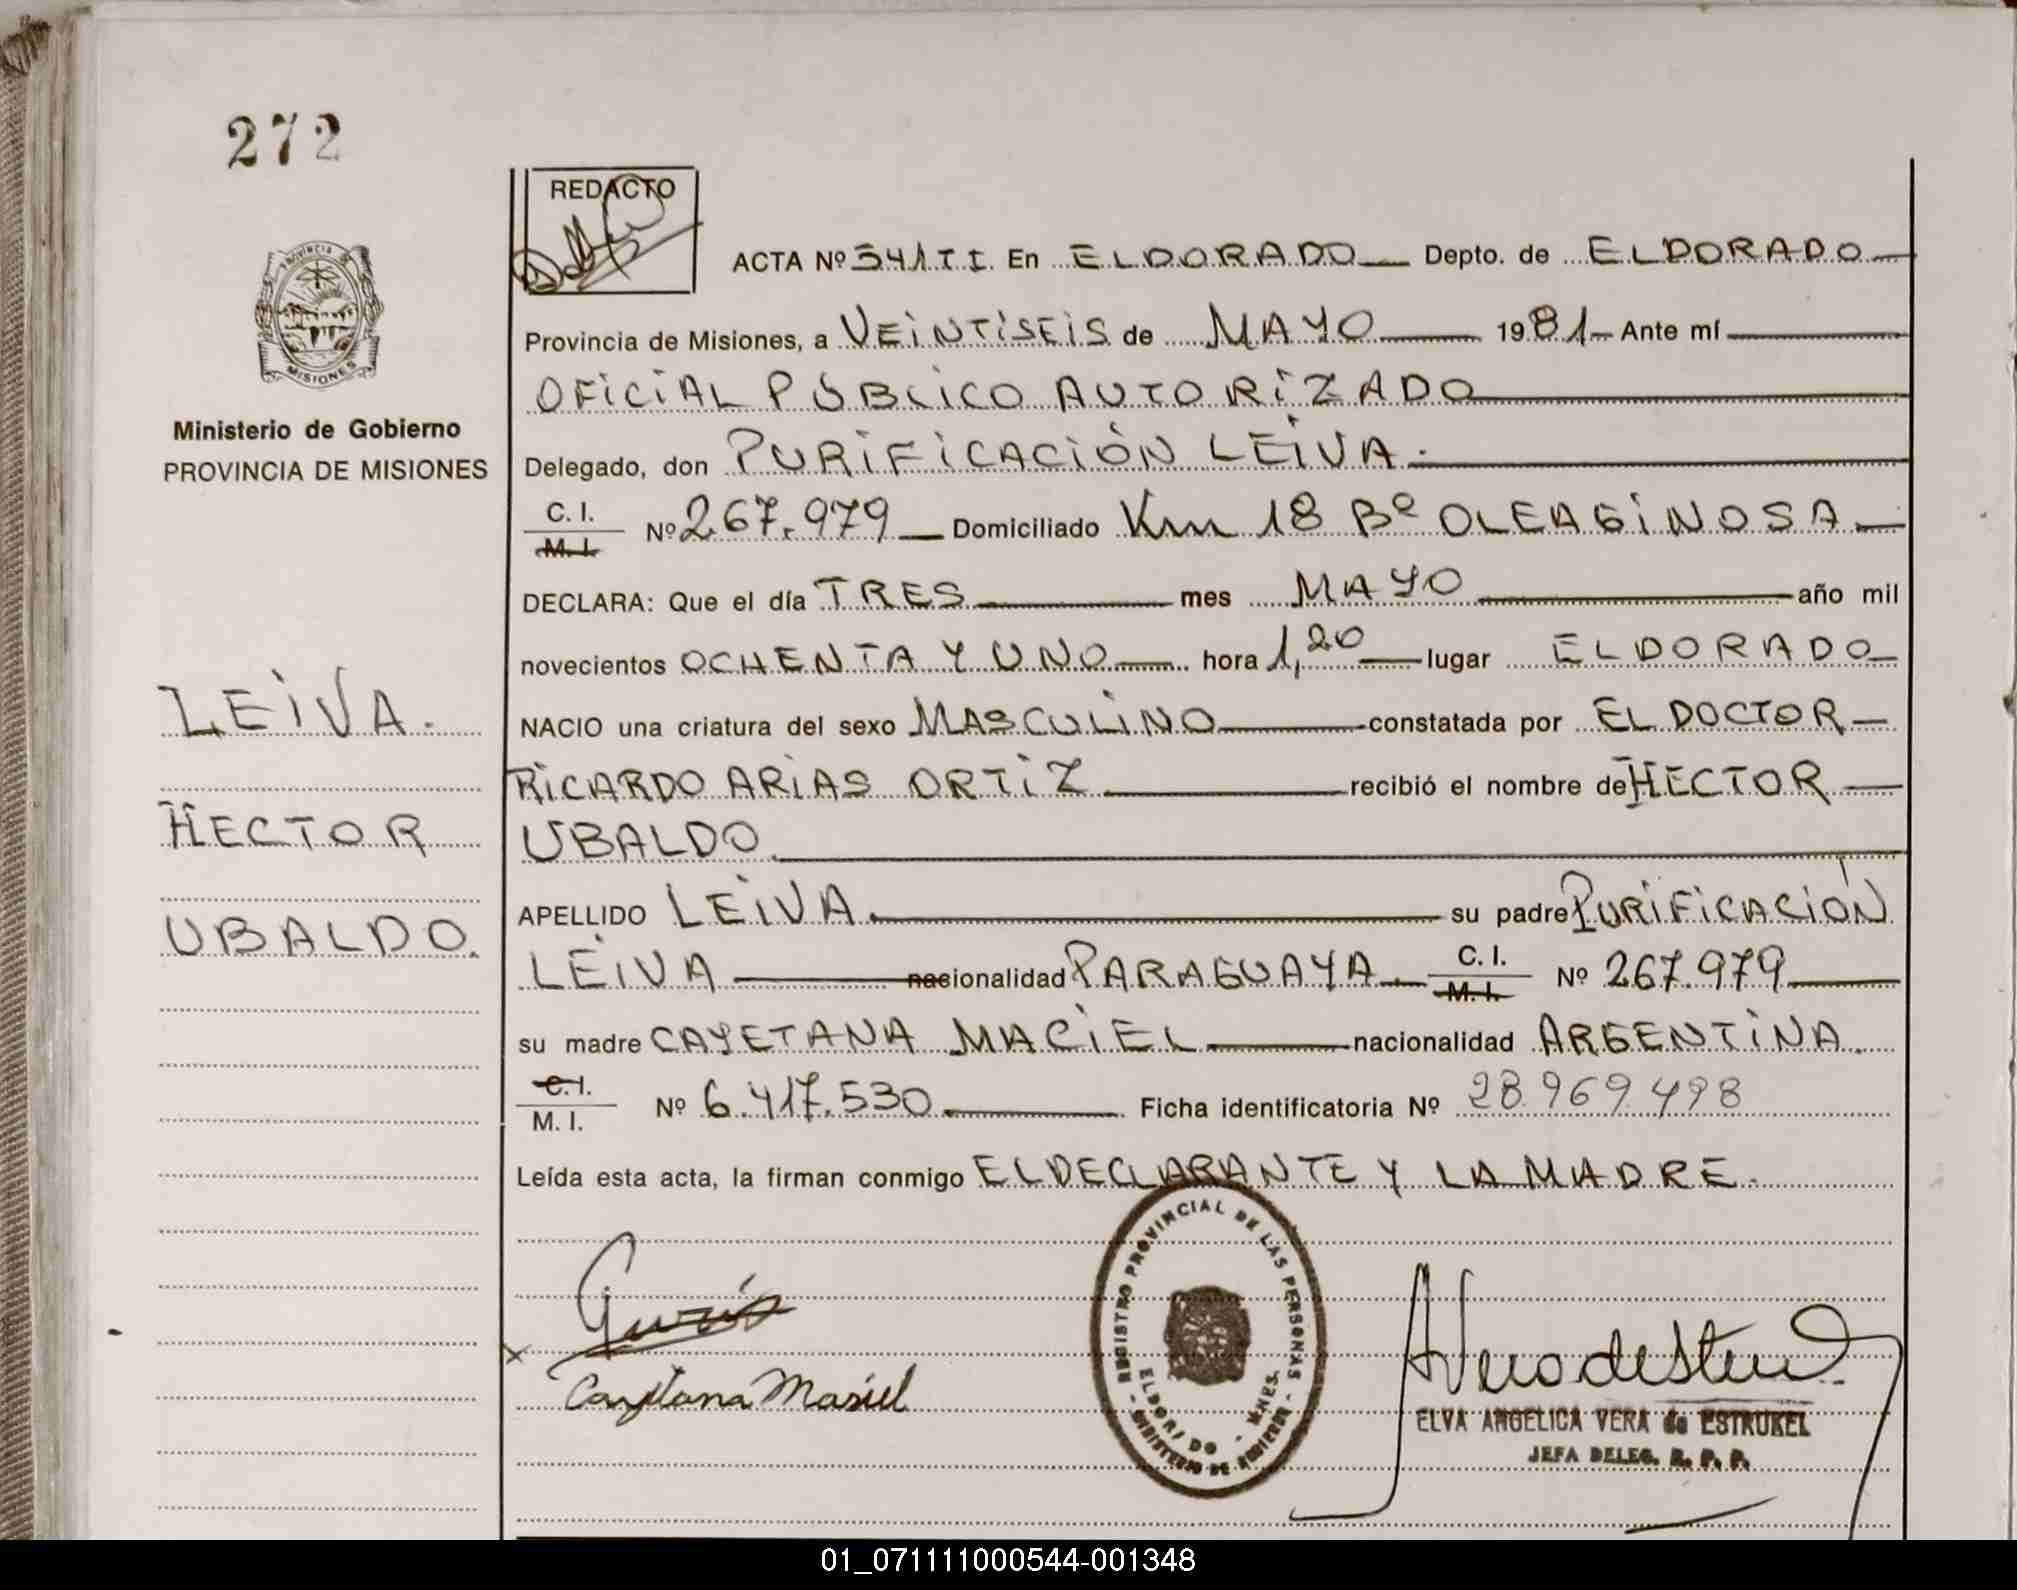 272
REDACTO
ACTA Nº 541 II. En ELDORADO Depto. de ELDORADO
Provincia de Misiones, a VEINTISEIS de MAYO 1981 Ante mí
OFICIAL PÚBLICO AUTORIZADO
Delegado, don PURIFICACIÓN LEIVA.
C. I.
M. I.
Nº 267.979 Domiciliado Km 18 Bº OLEAGINOSA
DECLARA: Que el día TRES mes MAYO año mil
novecientos OCHENTA Y UNO hora 1,20 lugar ELDORADO
NACIO una criatura del sexo MASCULINO constatada por EL DOCTOR
RICARDO ARIAS ORTIZ recibió el nombre de HECTOR
UBALDO
APELLIDO LEIVA su padre PURIFICACIÓN
LEIVA nacionalidad PARAGUAYA C. I. Nº 267.979
M. I.
su madre CAYETANA MACIEL nacionalidad ARGENTINA.
C. I.
M. I.
Nº 6.417.530 Ficha identificatoria Nº 28.969.498
Leída esta acta, la firman conmigo EL DECLARANTE Y LA MADRE.
PROVINCIA
MISIONES
Ministerio de Gobierno
PROVINCIA DE MISIONES
LEIVA.
HECTOR
UBALDO.
Cayetana Masiel
REGISTRO PROVINCIAL DE LAS PERSONAS
ELDORADO - MNES.
MINISTERIO DE GOBIERNO
ELVA ANGELICA VERA de ESTRUKEL
JEFA DELEG. R. P. P.
01_071111000544-001348